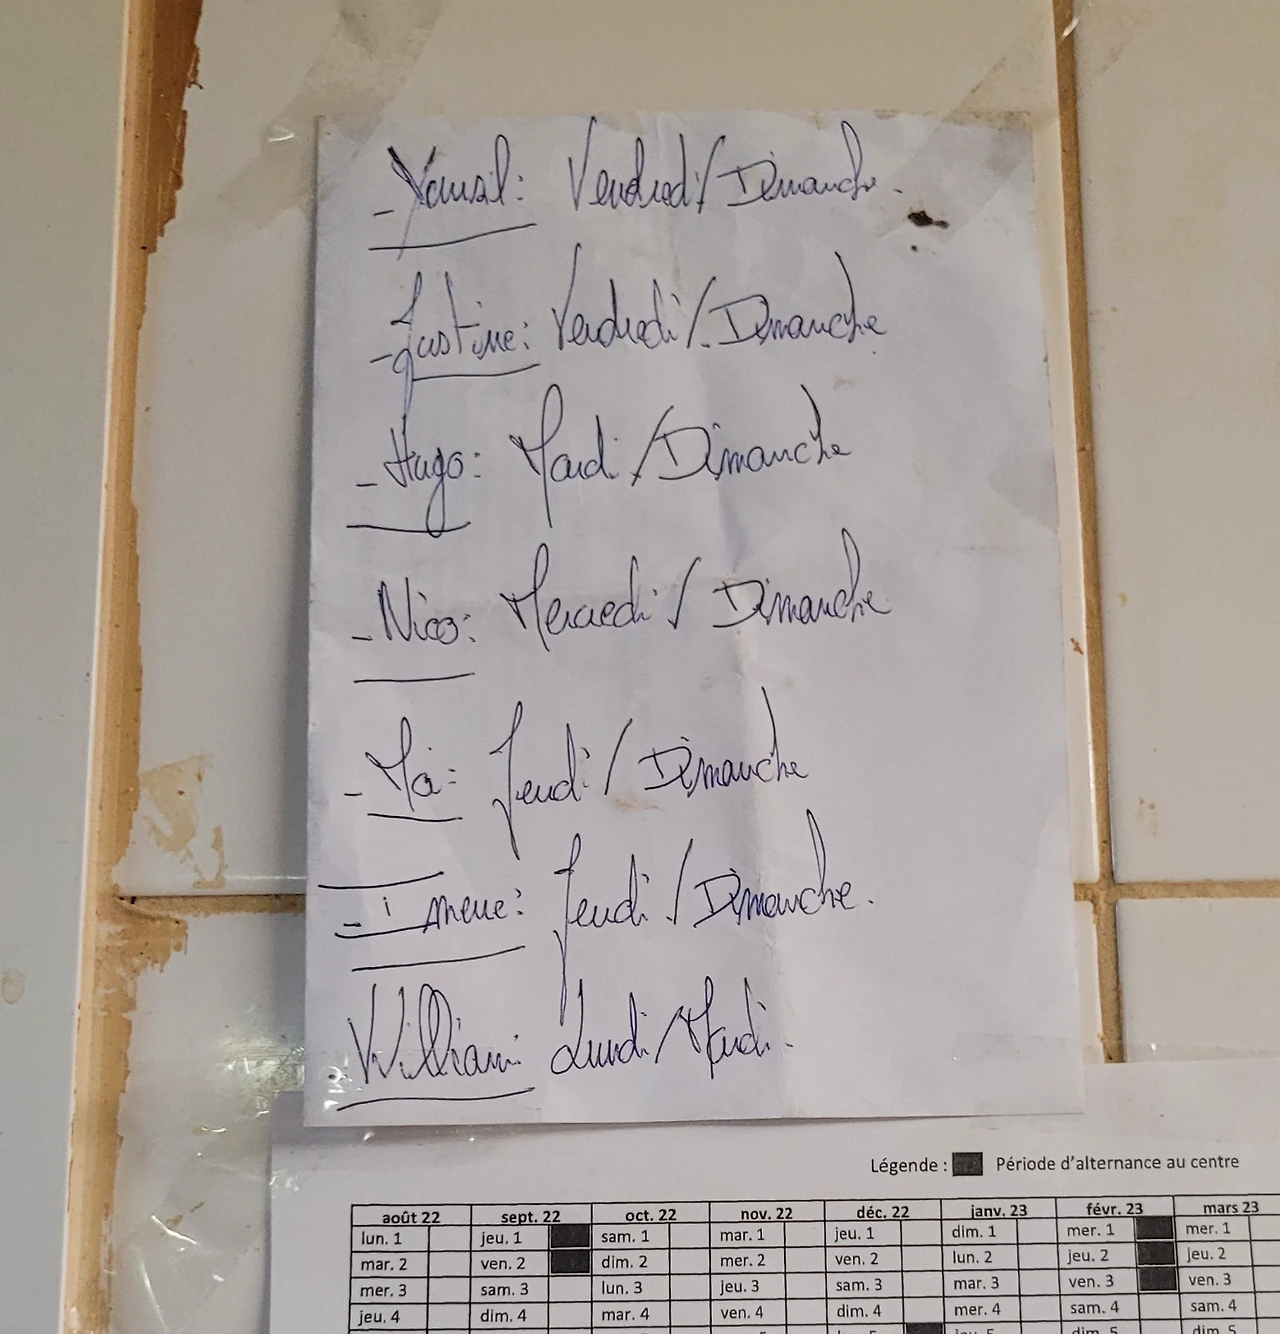 - Yamsil: Vendredi / Dimanche.
- Justine: Vendredi / Dimanche
- Hugo: Mardi / Dimanche
- Nico: Mercredi / Dimanche
- Jeudi / Dimanche
- imene: Jeudi / Dimanche.
William: Lundi / Mardi.
Légende : Période d'alternance au centre
août 22 sept. 22 oct. 22 nov. 22 déc. 22 janv. 23 févr. 23 mars 23
lun. 1 jeu. 1 sam. 1 mar. 1 jeu. 1 dim. 1 mer. 1 mer. 1
mar. 2 ven. 2 dim. 2 mer. 2 ven. 2 lun. 2 jeu. 2 jeu. 2
mer. 3 sam. 3 lun. 3 jeu. 3 sam. 3 mar. 3 ven. 3 ven. 3
jeu. 4 dim. 4 mar. 4 ven. 4 dim. 4 mer. 4 sam. 4 sam. 4